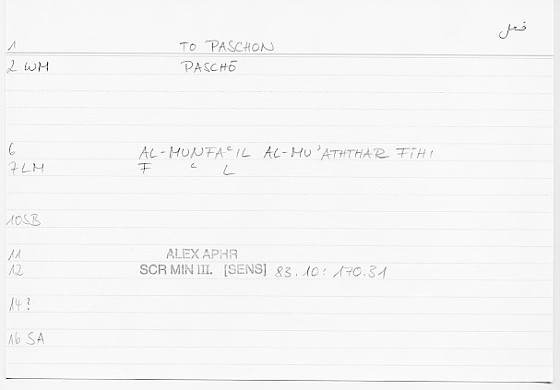 فعل
1 TO PASCHON
2 WM PASCHŌ
6 AL-MUNFAᶜIL AL-MUʾATHTHAR FĪHI
7 LM F ᶜ L
10 SB
11 ALEX APHR
12 SCR MIN III. [SENS] 83.10: 170.31
14 ?
16 SA